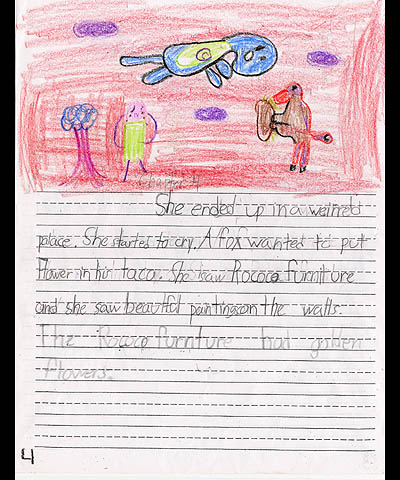 Chapter 4
She ended up in a weired
palace. She started to cry. A fox wanted to put
flower in his taco. She saw Rococo furniture
and she saw beautful paintings on the walls.
The Rococo furniture had golden
flowers.
4